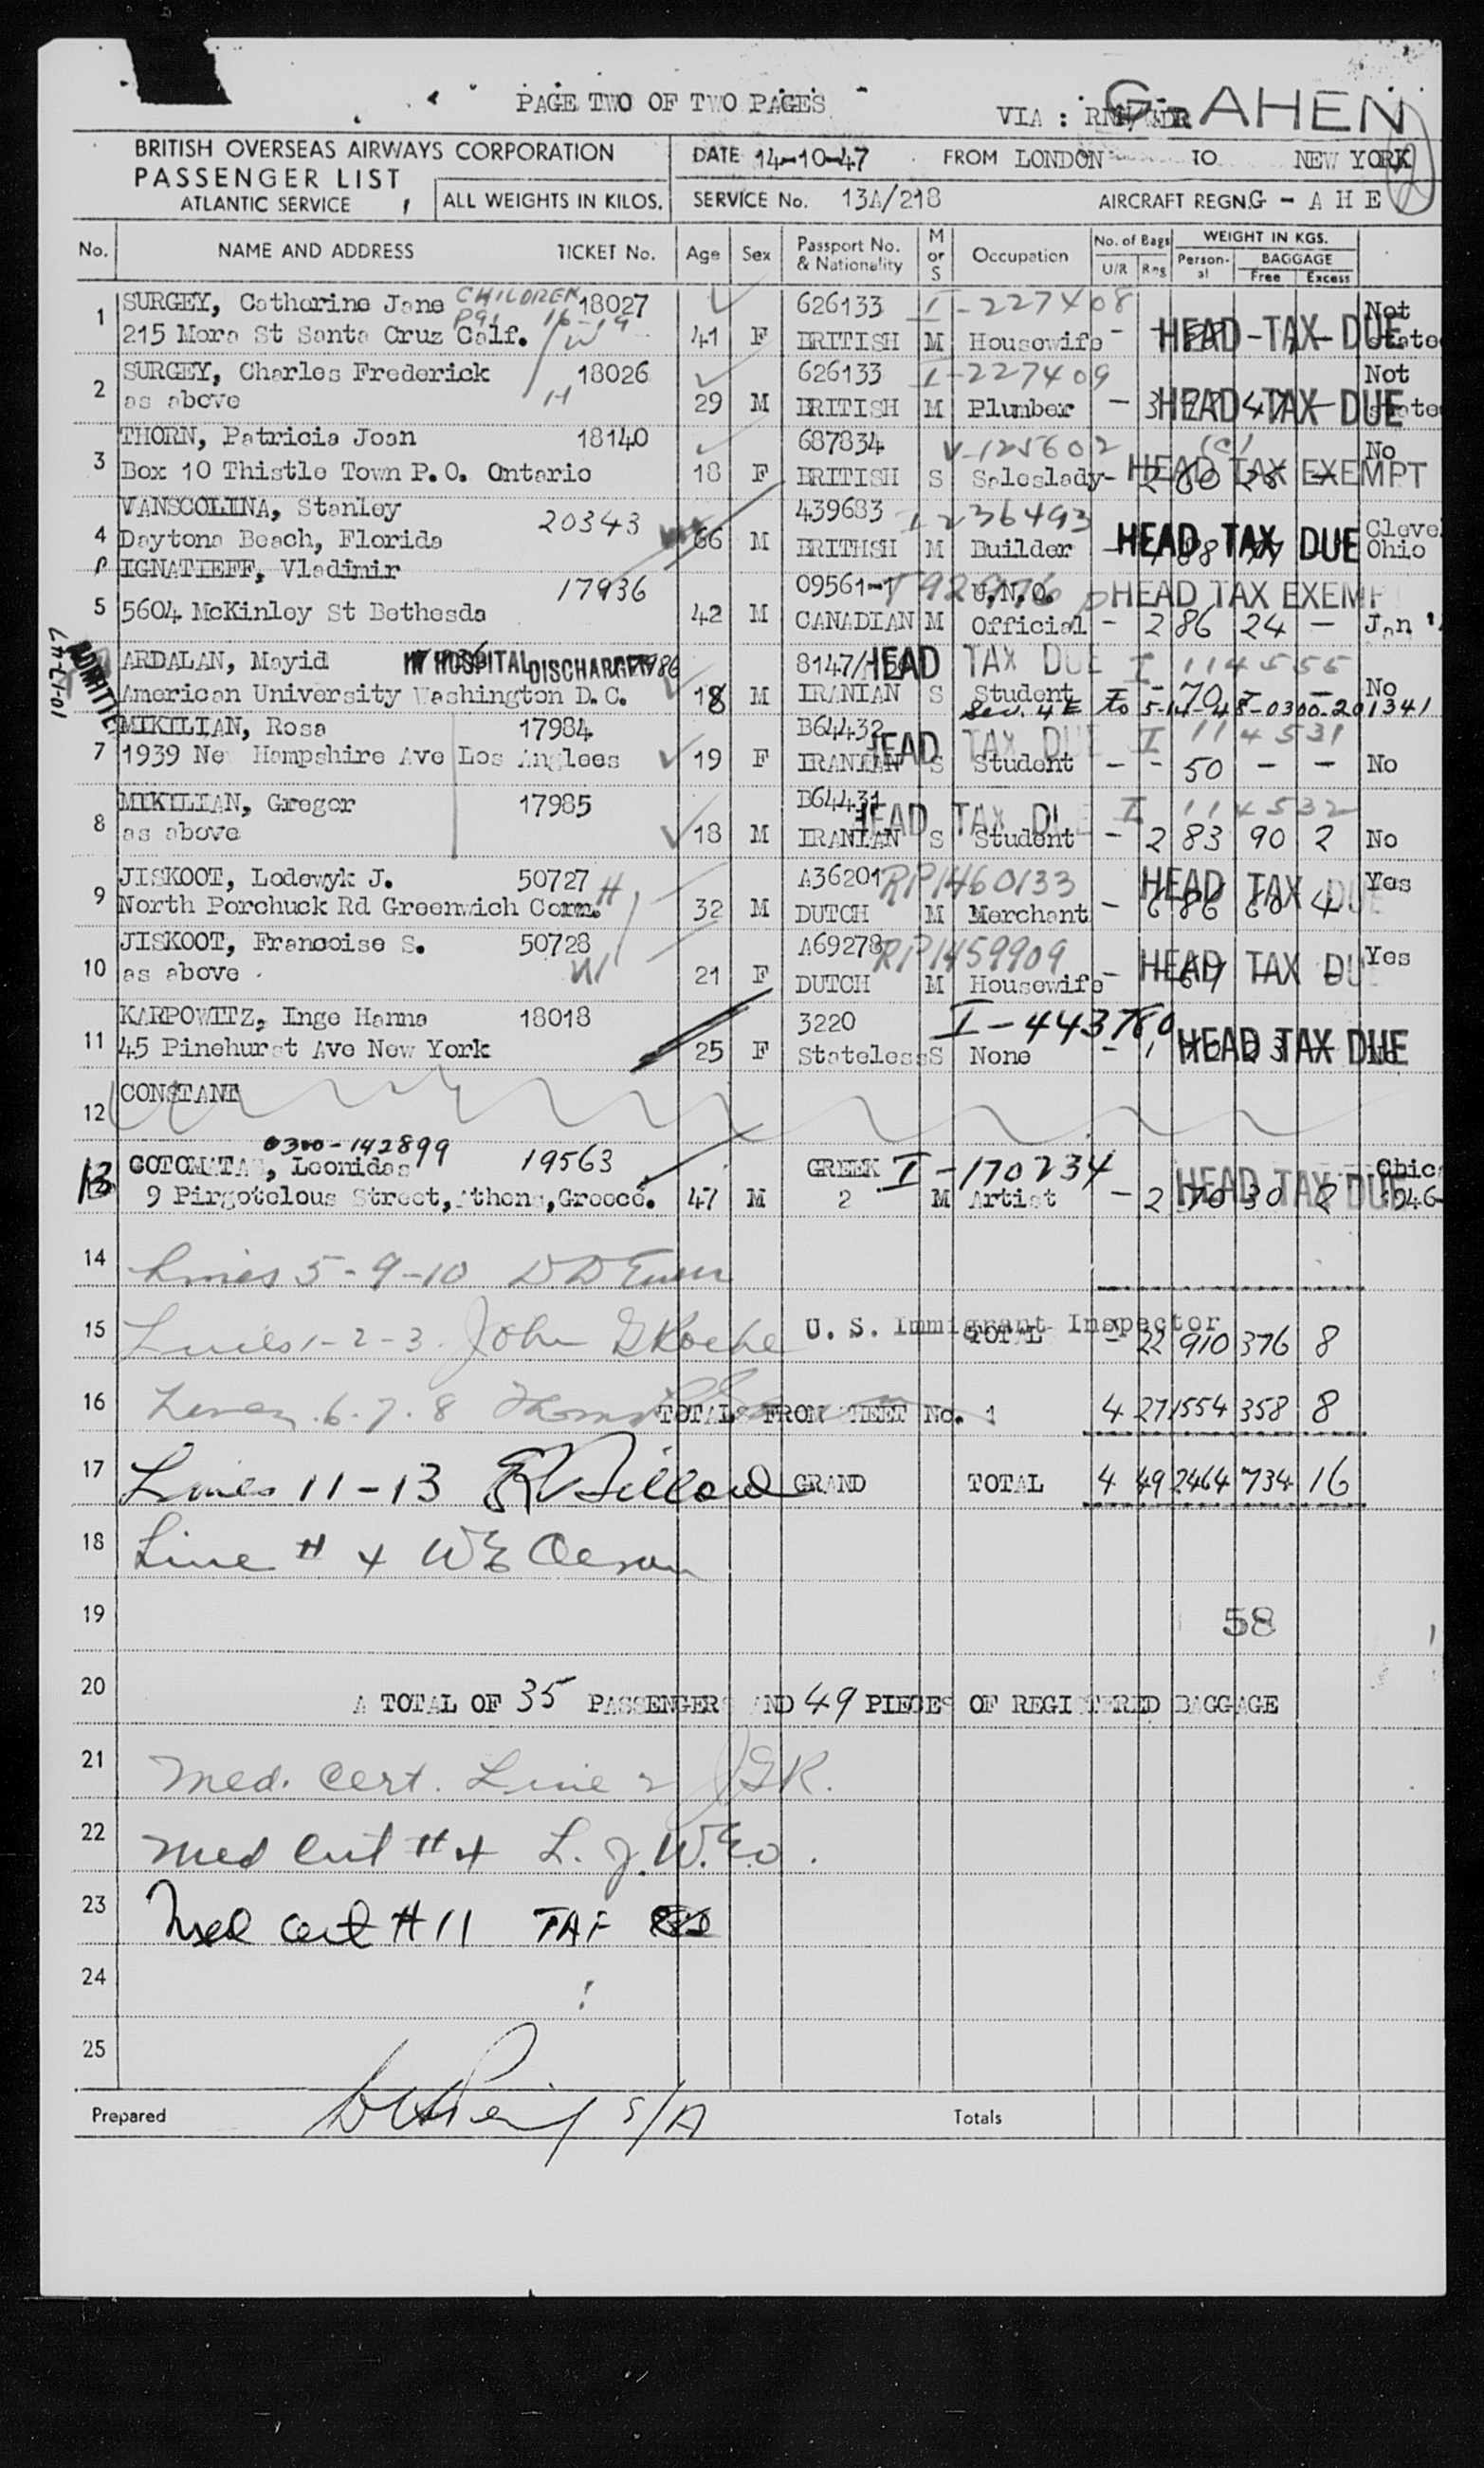 PAGE TWO OF TWO PAGES
VIA :
G-AHEN
BRITISH OVERSEAS AIRWAYS CORPORATION
PASSENGER LIST
ATLANTIC SERVICE
ALL WEIGHTS IN KILOS.
DATE 14-10-47 FROM LONDON TO NEW YORK
SERVICE No. 13A/218 AIRCRAFT REGN. G - A H E
No. NAME AND ADDRESS TICKET No. Age Sex Passport No. & Nationality M or S Occupation No. of Bags U/R Reg WEIGHT IN KGS. Personal BAGGAGE Free Excess
1 SURGEY, Catherine Jane CHILDREN 18027 626133 I-227408 Not
215 Mora St Santa Cruz Calf. 16-19 W 41 F BRITISH M Housewife - HEAD TAX DUE
2 SURGEY, Charles Frederick 18026 626133 I-227409 Not
as above H 29 M BRITISH M Plumber - 3 47 - HEAD TAX DUE
3 THORN, Patricia Joan 18140 687834 V-125602 No
Box 10 Thistle Town P.O. Ontario 18 F BRITISH S Saleslady - HEAD TAX EXEMPT
4 VANSCOLINA, Stanley 20343 439683 I 236493 Cleve
Daytona Beach, Florida 66 M BRITHSH M Builder - HEAD TAX DUE Ohio
5 IGNATIEFF, Vladimir 17936 09561-1 U.N.O. HEAD TAX EXEMP
5604 McKinley St Bethesda 42 M CANADIAN M Official - 2 86 24 - Jan
ADMITTED
ARDALAN, Mayid IN HOSPITAL DISCHARGED 8147/ HEAD TAX DUE I 114555
American University Washington D.C. 18 M IRANIAN S Student - 70 - - No
Sec. 4E To 5-14-48-0300-201341
7 MIKILIAN, Rosa 17984 B64432 HEAD TAX DUE I 114531
1939 New Hampshire Ave Los Anglees 19 F IRANIAN S Student - - 50 - - No
8 MIKILIAN, Gregor 17985 B64431 HEAD TAX DU I 114532
as above 18 M IRANIAN S Student - 2 83 90 2 No
9 JISKOOT, Lodewyk J. 50727 H A36201 RP1460133 HEAD TAX DUE Yes
North Porchuck Rd Greenwich Conn. 32 M DUTCH M Merchant - 6 86 60 4
10 JISKOOT, Francoise S. 50728 W A69278 RP1459909 Yes
as above 21 F DUTCH M Housewife - HEAD TAX DU
11 KARPOWITZ, Inge Hanna 18018 3220 I-443780
45 Pinehurst Ave New York 25 F Stateless S None - 1 HEAD TAX DUE
12 CONSTANT
0300-142899
13 COTOMATAS, Leonidas 19563 GREEK I-170234 HEAD TAX DUE Chic
9 Pirgotelous Street, Athens, Greece. 47 M 2 M Artist - 2 70 30 2 1946
14 Lines 5-9-10
15 Lines 1-2-3. John G Roche U. S. Immigrant Inspector TOTAL - 22 910 376 8
16 Lines. 6. 7. 8 TOTALS FROM SHEET No. 1 4 27 1554 358 8
17 Lines 11-13 GRAND TOTAL 4 49 2464 734 16
18 Line # 4
19 58
20 A TOTAL OF 35 PASSENGERS AND 49 PIECES OF REGISTERED BAGGAGE
21 Med. Cert. Line 2 JGR.
22 Med Cert #4 L. J. W.E.O.
23 Med Cert #11 TAF
24
25
Prepared S/A Totals